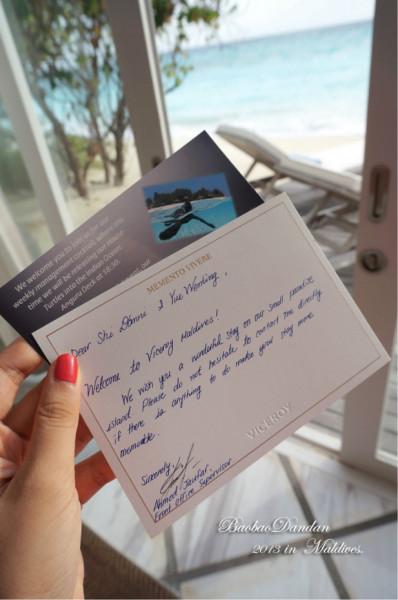 We welcome you to join us for our
weekly management cocktail where
time we will be releasing our House
Turtles into the Indian Ocean
Anguru Deck at 18:30.
MEMENTO VIVERE
Dear Shi Danni & Yue Wanting,
Welcome to Viceroy Maldives!
We wish you a wonderful stay on our small paradise
island. Please do not hesitate to contact me directly
if there is anything to do make your stay more
memorable.
Sincerely
Ahmed
Front Office Supervisor
VICEROY
BaobaoDandan
2013 in Maldives.